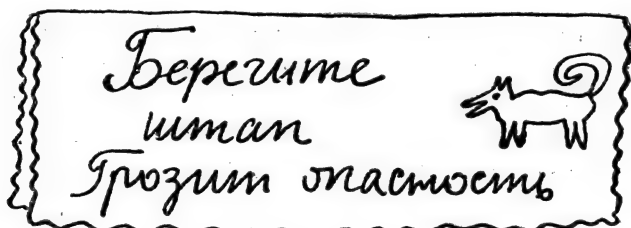 Берегите
штап
Грозит опастость